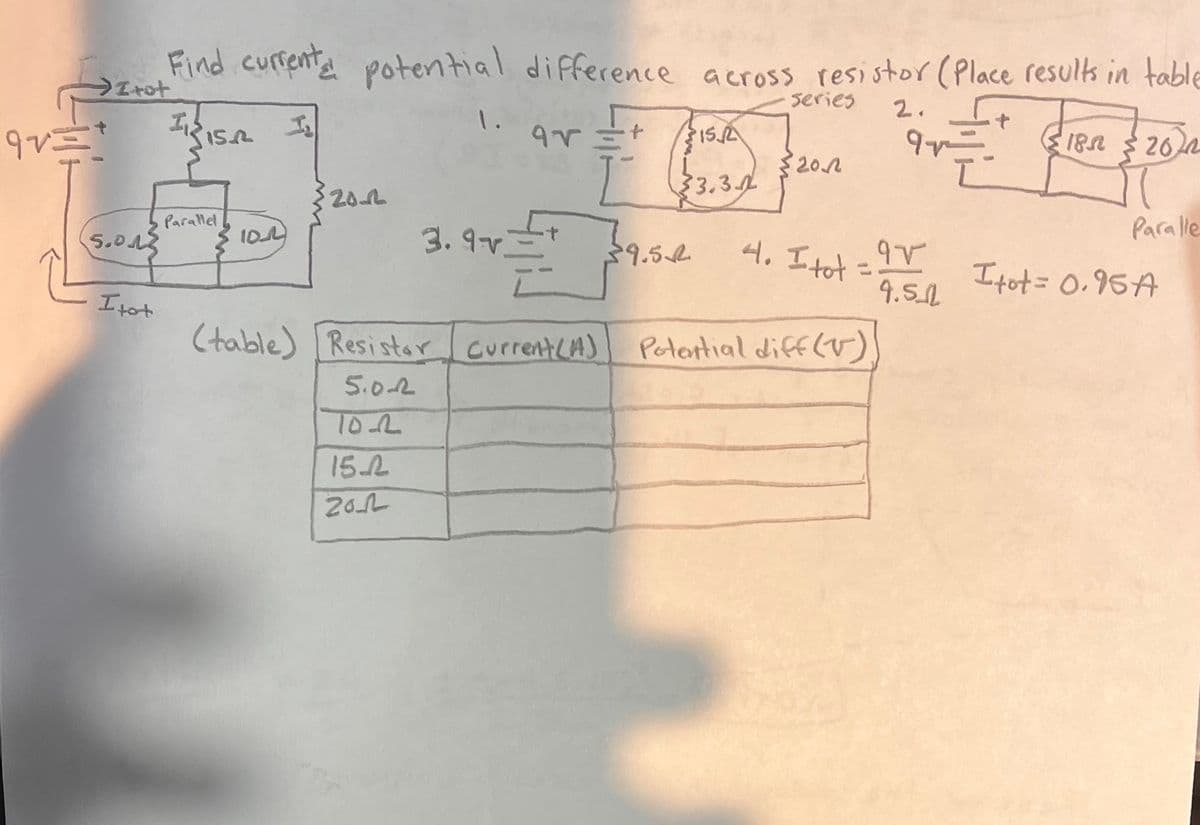 Find current & potential difference across resistor (Place results in table
→Itot
9V + -
I1 15Ω I2
20Ω
5.0Ω Parallel 10Ω
Itot
1. 9V + -
series
15Ω
3.3Ω
20Ω
2. 9V + -
18Ω 20Ω
Paralle
3. 9V + -
9.5Ω
4. Itot = 9V / 9.5Ω Itot = 0.95A
(table) Resistor Current(A) Potential diff(V)
5.0Ω
10Ω
15Ω
20Ω